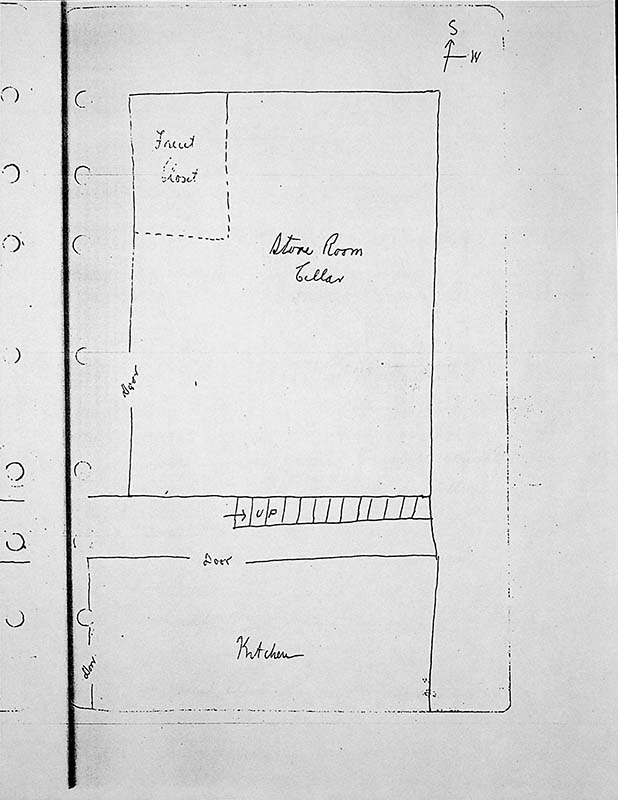 S
W
Fruit
Closet
Store Room
Cellar
Door
UP
Door
Kitchen
Door